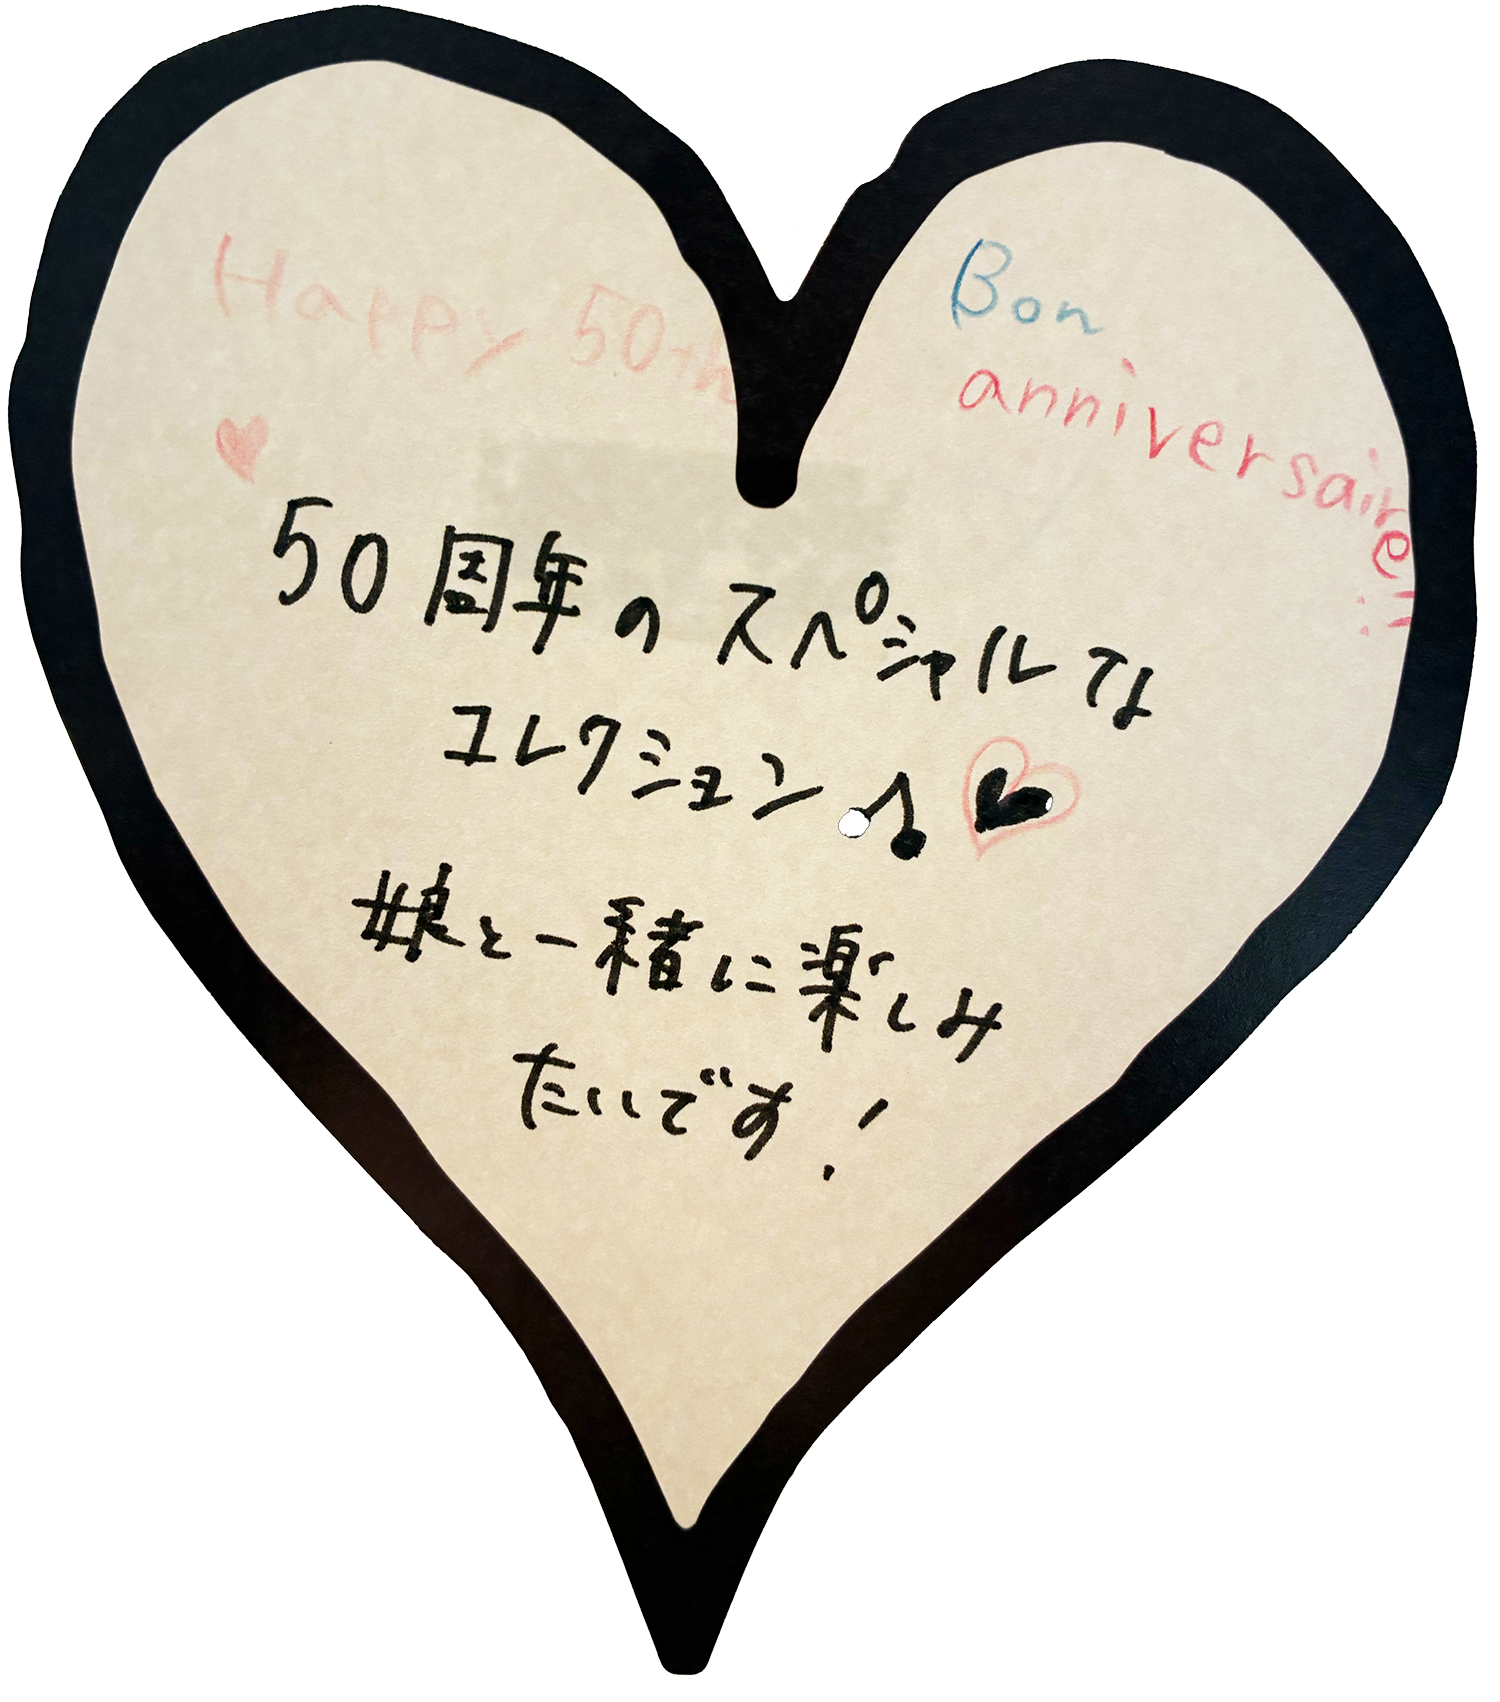 Happy 50th
Bon
anniversaire!!
50周年のスペシャルな
コレクション♪♥
娘と一緒に楽しみ
たいです！